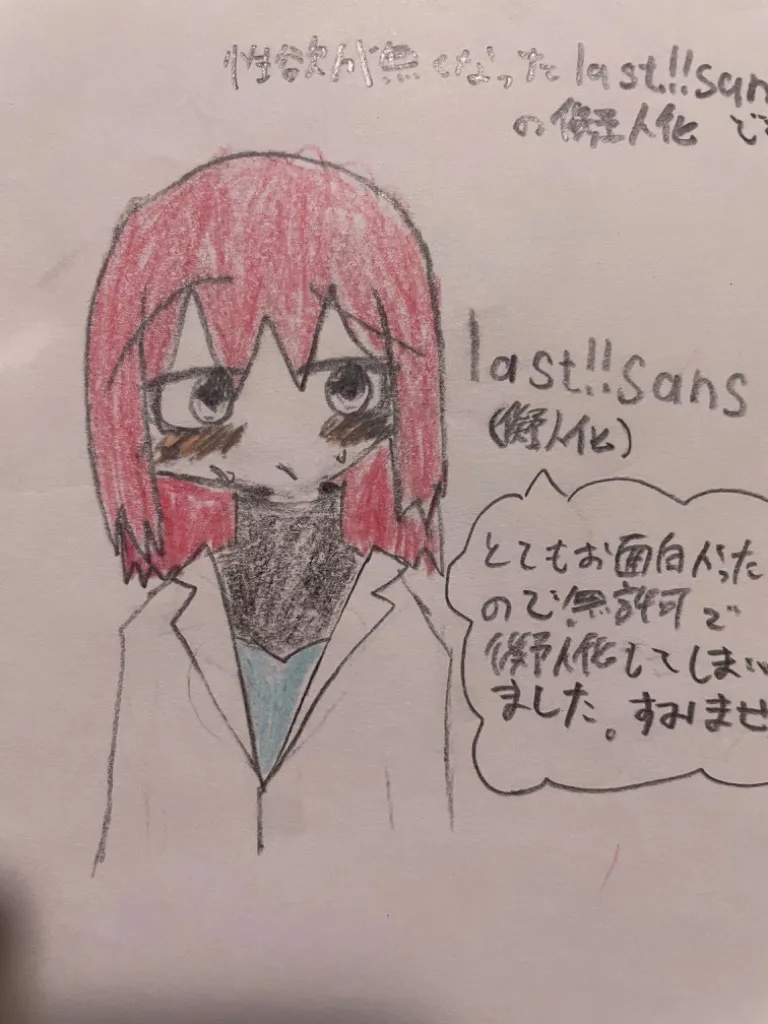 性欲が無くなったlast!!san
の擬人化 で
last!!sans
(擬人化)
とてもお面白かった
ので無許可で
擬人化してしまい
ました。すみませ